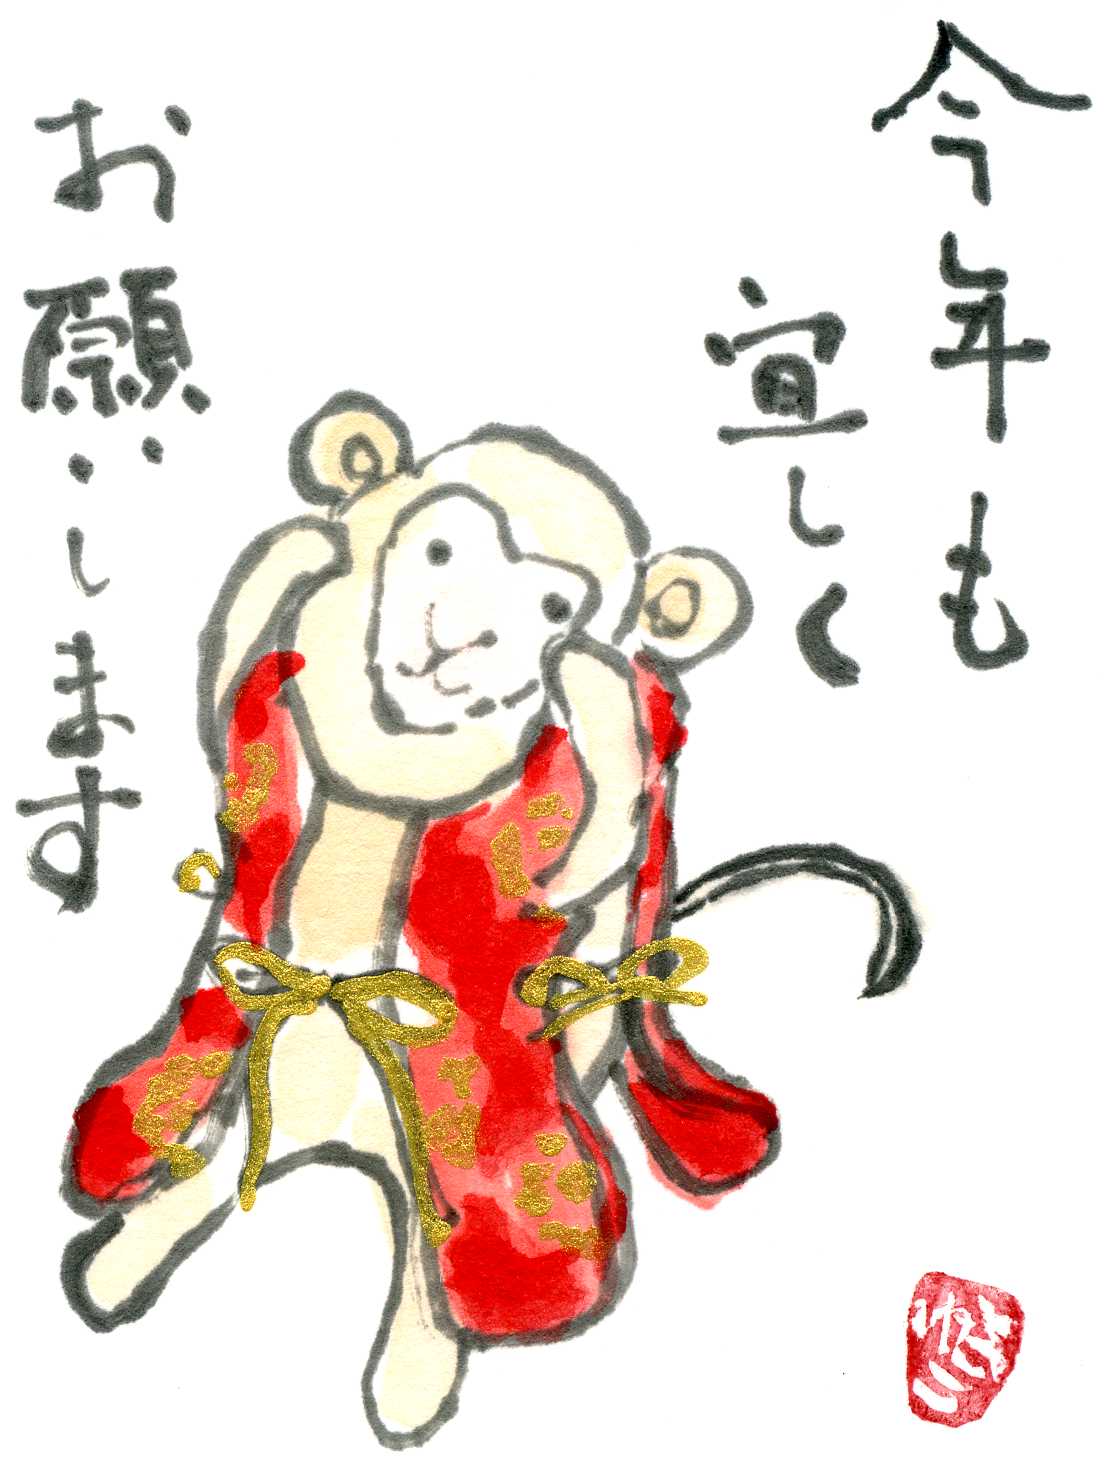 今年も
宜しく
お願いします